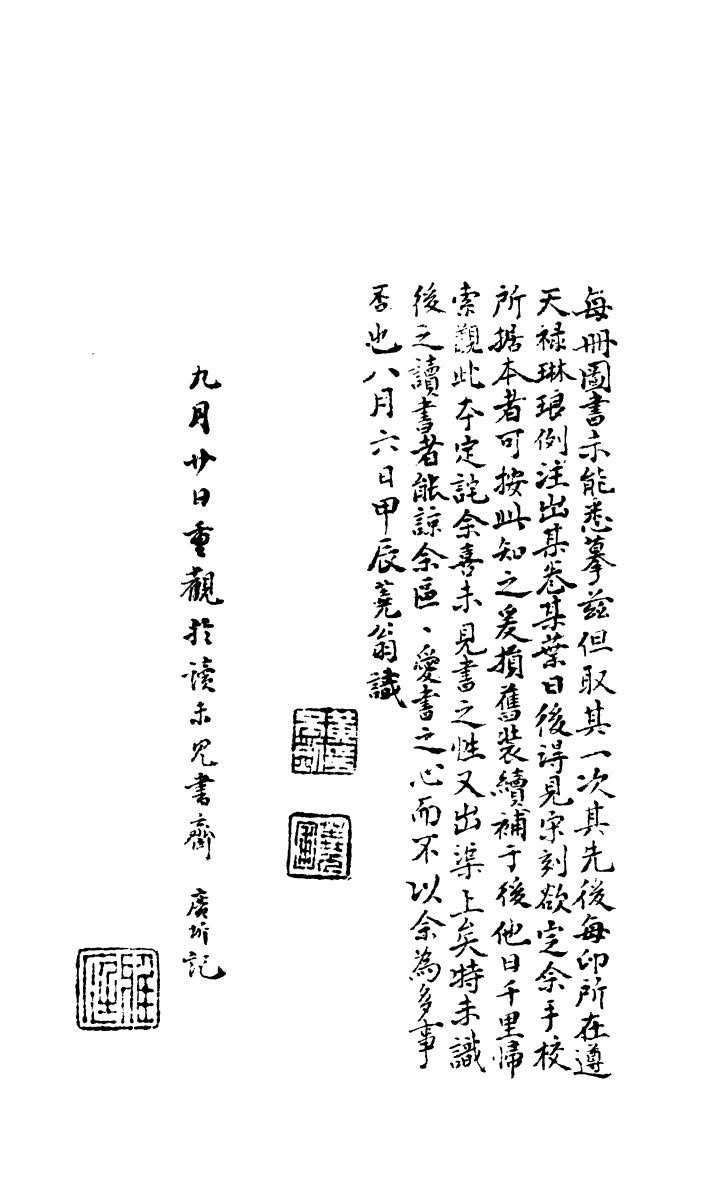 每册圖書未能悉摹茲但取其一次其先後每印所在遵
天禄琳琅例注出某卷某葉日後得見宋刻欲定余手校
所据本者可按此知之爰損舊裝續補于後他日千里歸
索觀此本定詫余喜未見書之性又出渠上矣特未識
後之讀書者能諒余區、愛書之心而不以余為多事
否也八月六日甲辰蕘翁識
九月廿日重觀於讀未見書齋 廣圻記